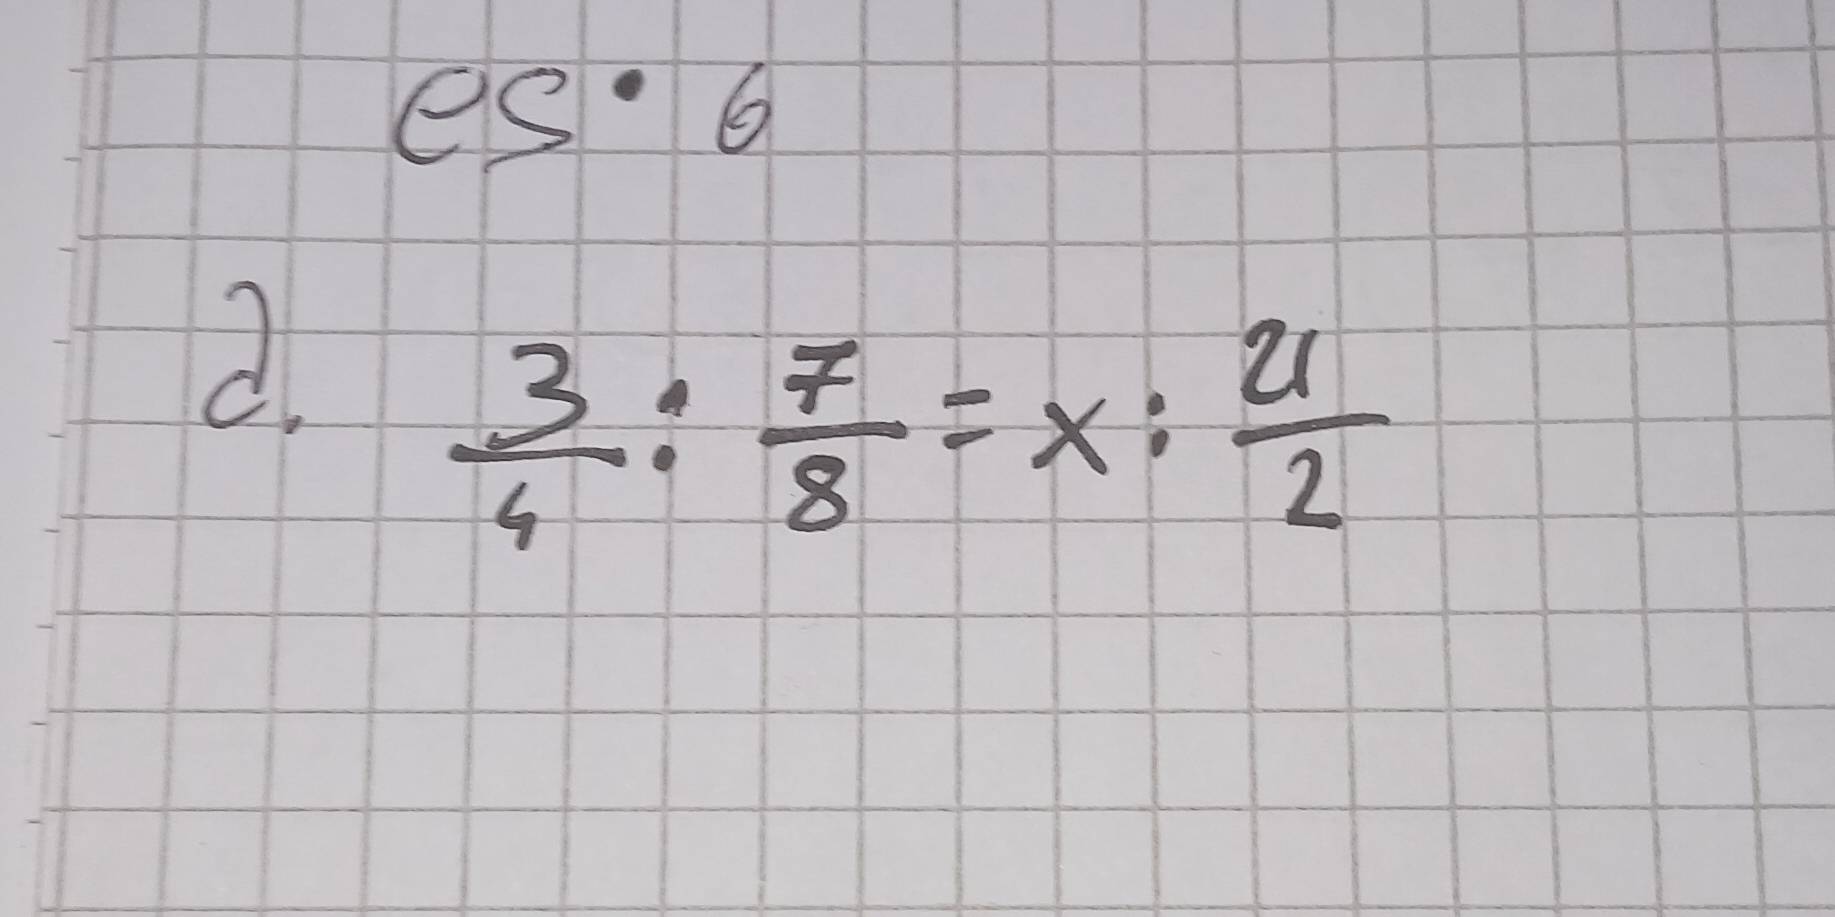 es. 6
d. 3/4 : 7/8 = x : 21/2